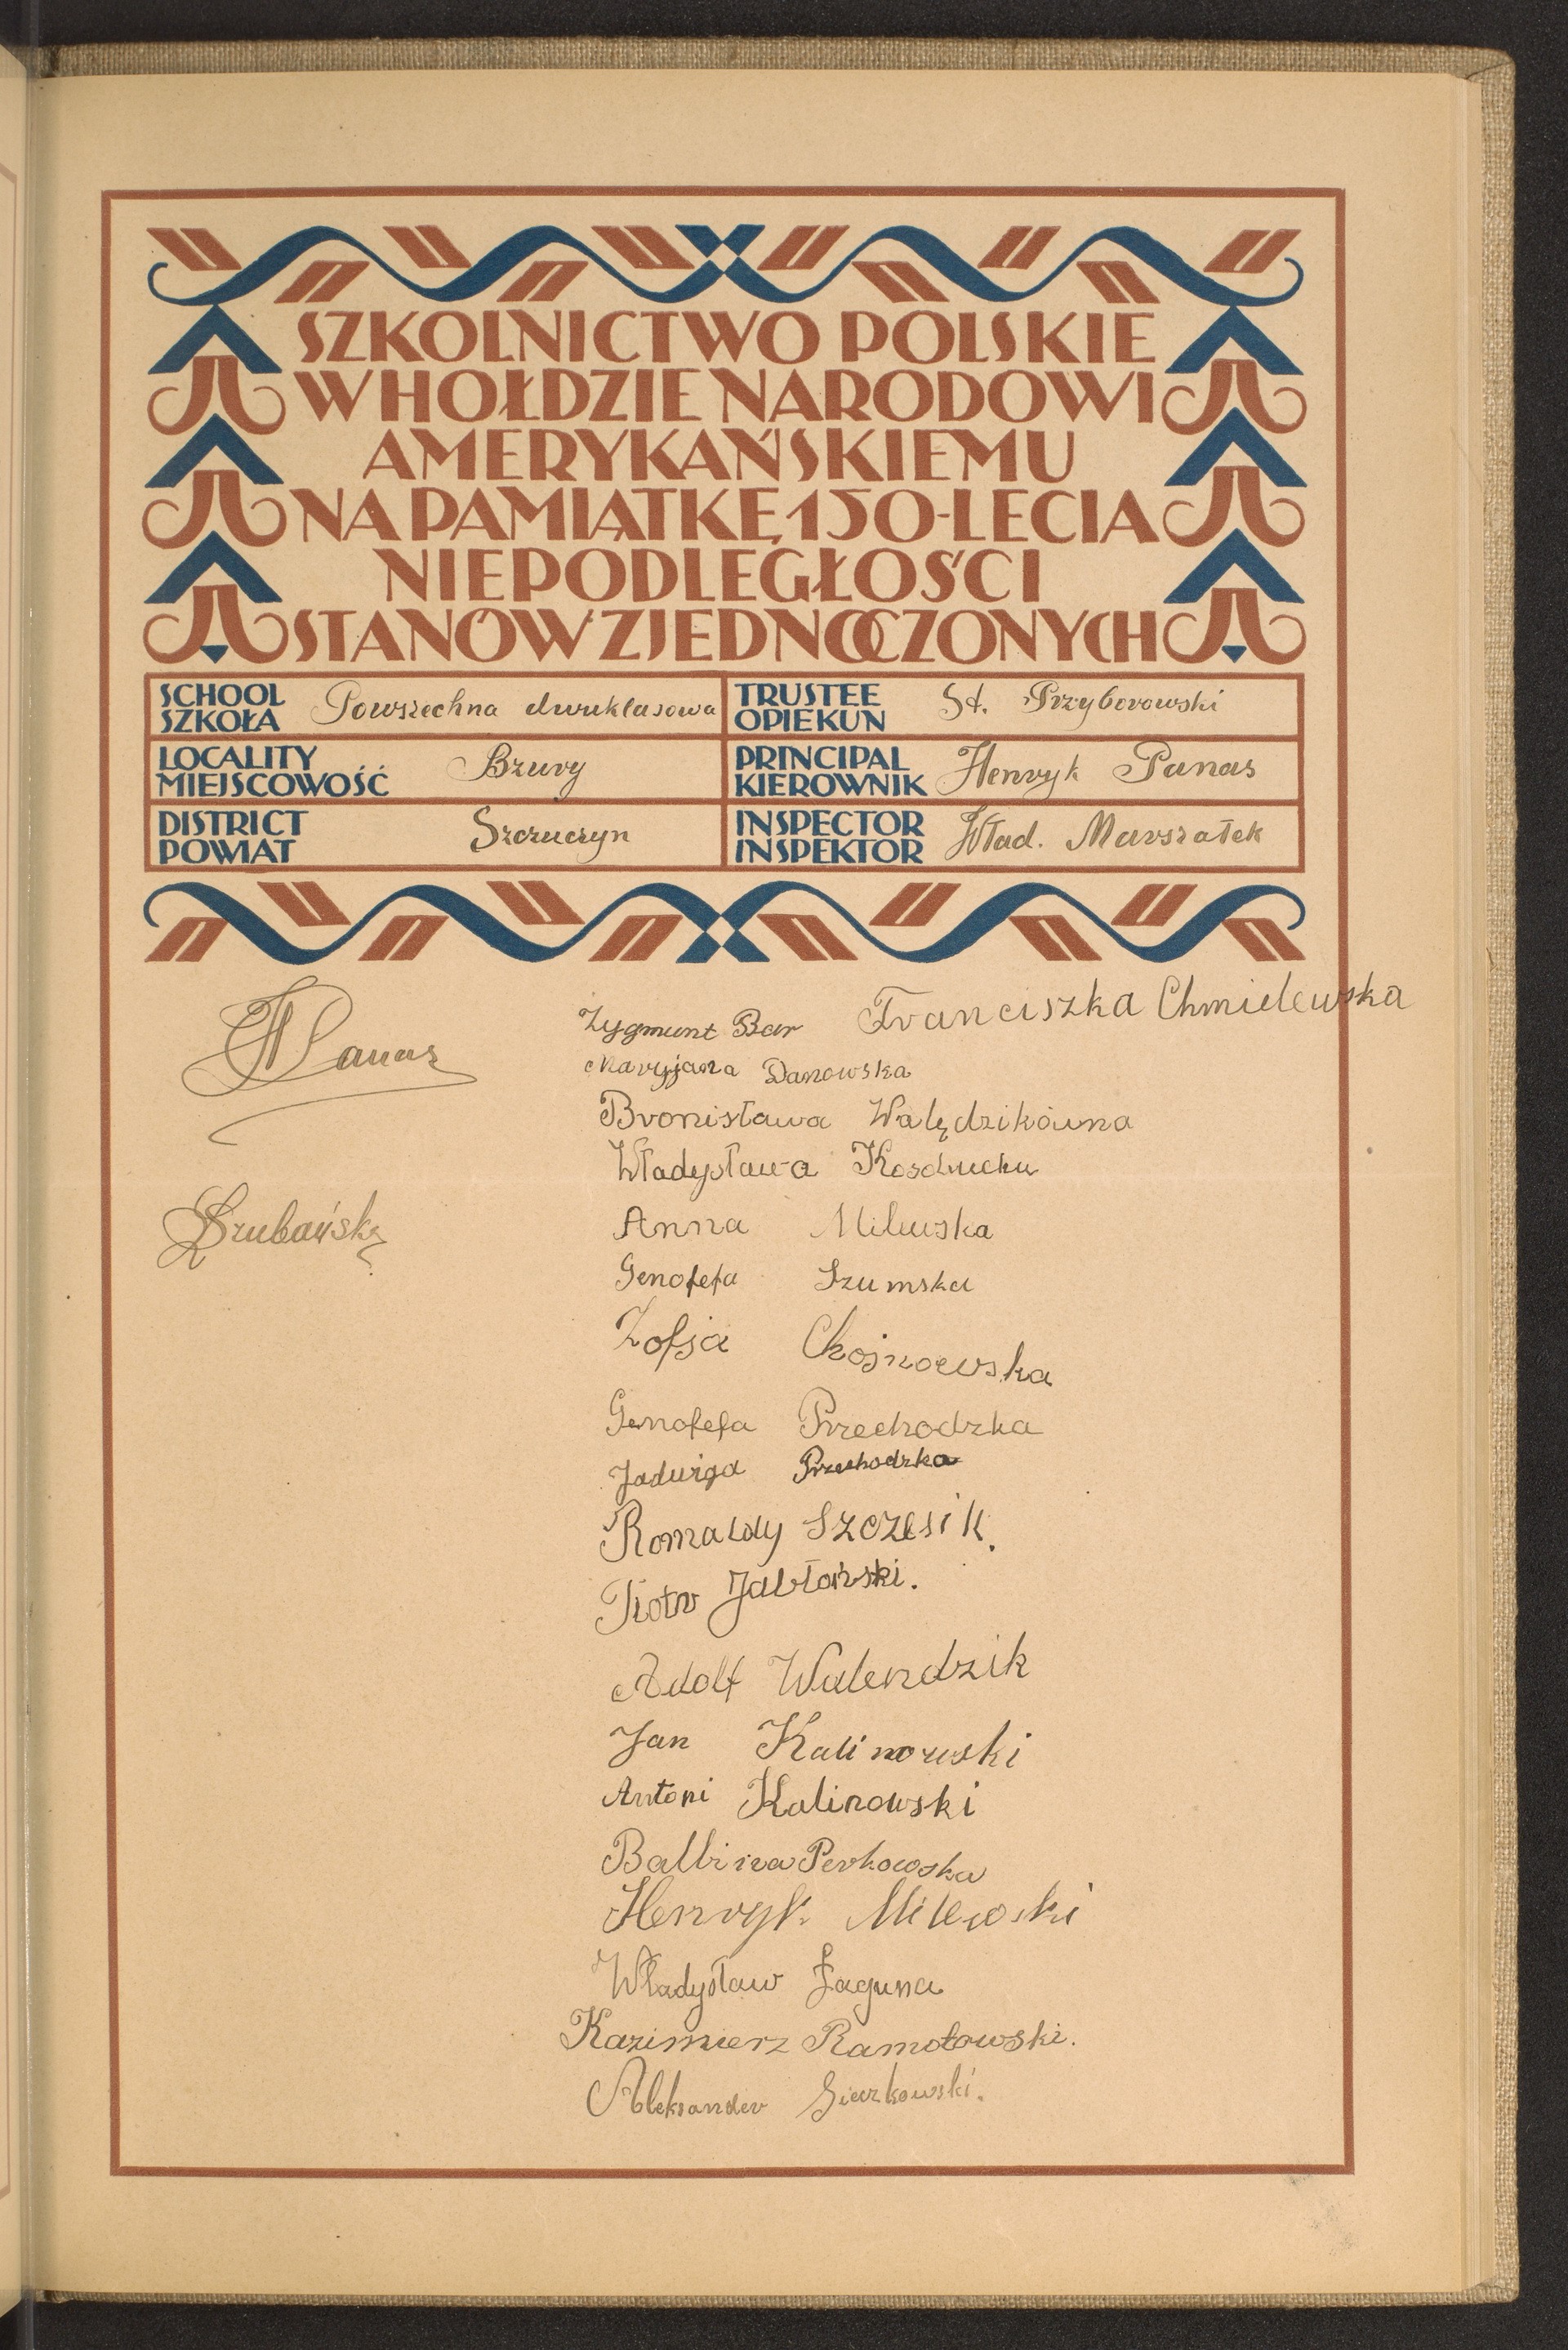 SZKOLNICTWO POLSKIE
W HOŁDZIE NARODOWI
AMERYKAŃSKIEMU
NA PAMIĄTKĘ 150-LECIA
NIEPODLEGŁOŚCI
STANÓW ZJEDNOCZONYCH
SCHOOL
SZKOŁA Powszechna dwuklasowa
TRUSTEE
OPIEKUN St. Przyborowski
LOCALITY
MIEJSCOWOŚĆ Bzury
PRINCIPAL
KIEROWNIK Henryk Panas
DISTRICT
POWIAT Szczuczyn
INSPECTOR
INSPEKTOR Wład. Marszałek
HPanas
Zygmunt Bar Franciszka Chmielewska
Maryjana Danowska
Bronisława Walędzikówna
Władysława
Anna Milewska
Genofefa Szumska
Zofja Chojnowska
Genofefa Przechodzka
Jadwiga Przechodzka
Romaldy Szczesik.
Piotr Jabłoński.
Adolf Walendzik
Jan Kalinowski
Antoni Kalinowski
Balbina Perkowska
Henryk Milewski
Władysław Łaguna
Kazimierz Ramotowski.
Aleksander